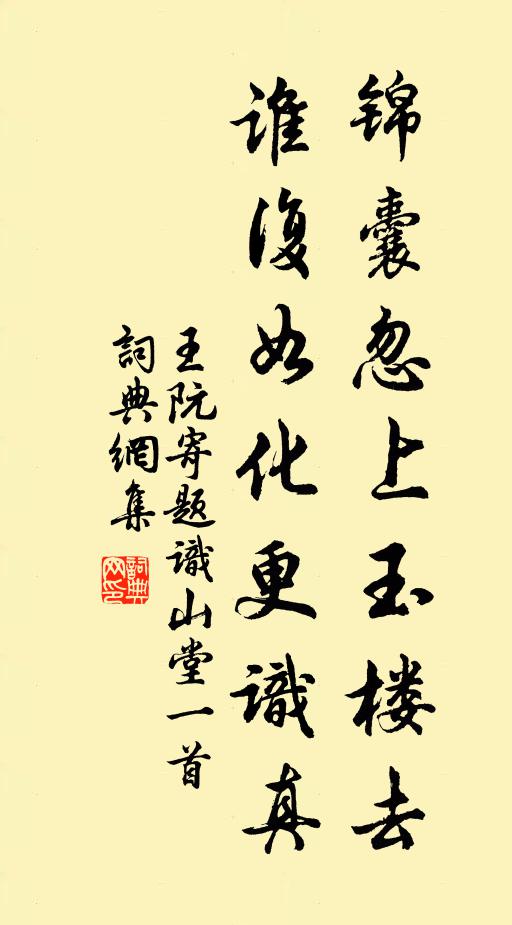 锦囊忽上玉楼去
谁復如化更識真
王阮寄题識山堂一首
詞典網集
詞典网印